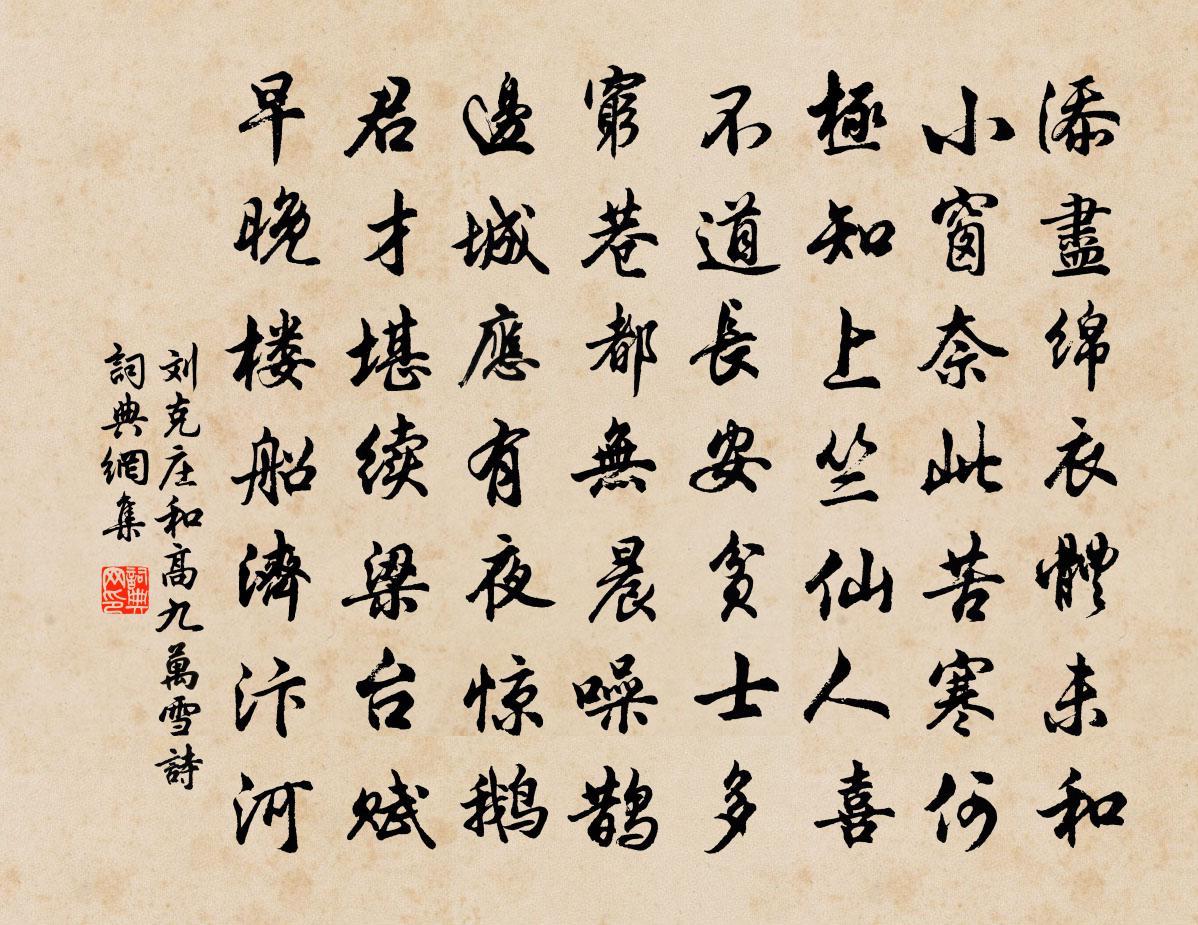 添盡绵衣體未和
小窗奈此苦寒何
極知上竺仙人喜
不道長安贫士多
窮巷都無晨噪鹊
邊城應有夜惊鹅
君才堪续梁台赋
早晚楼船濟汴河
刘克庄和高九萬雪詩
詞典網集
詞典網印